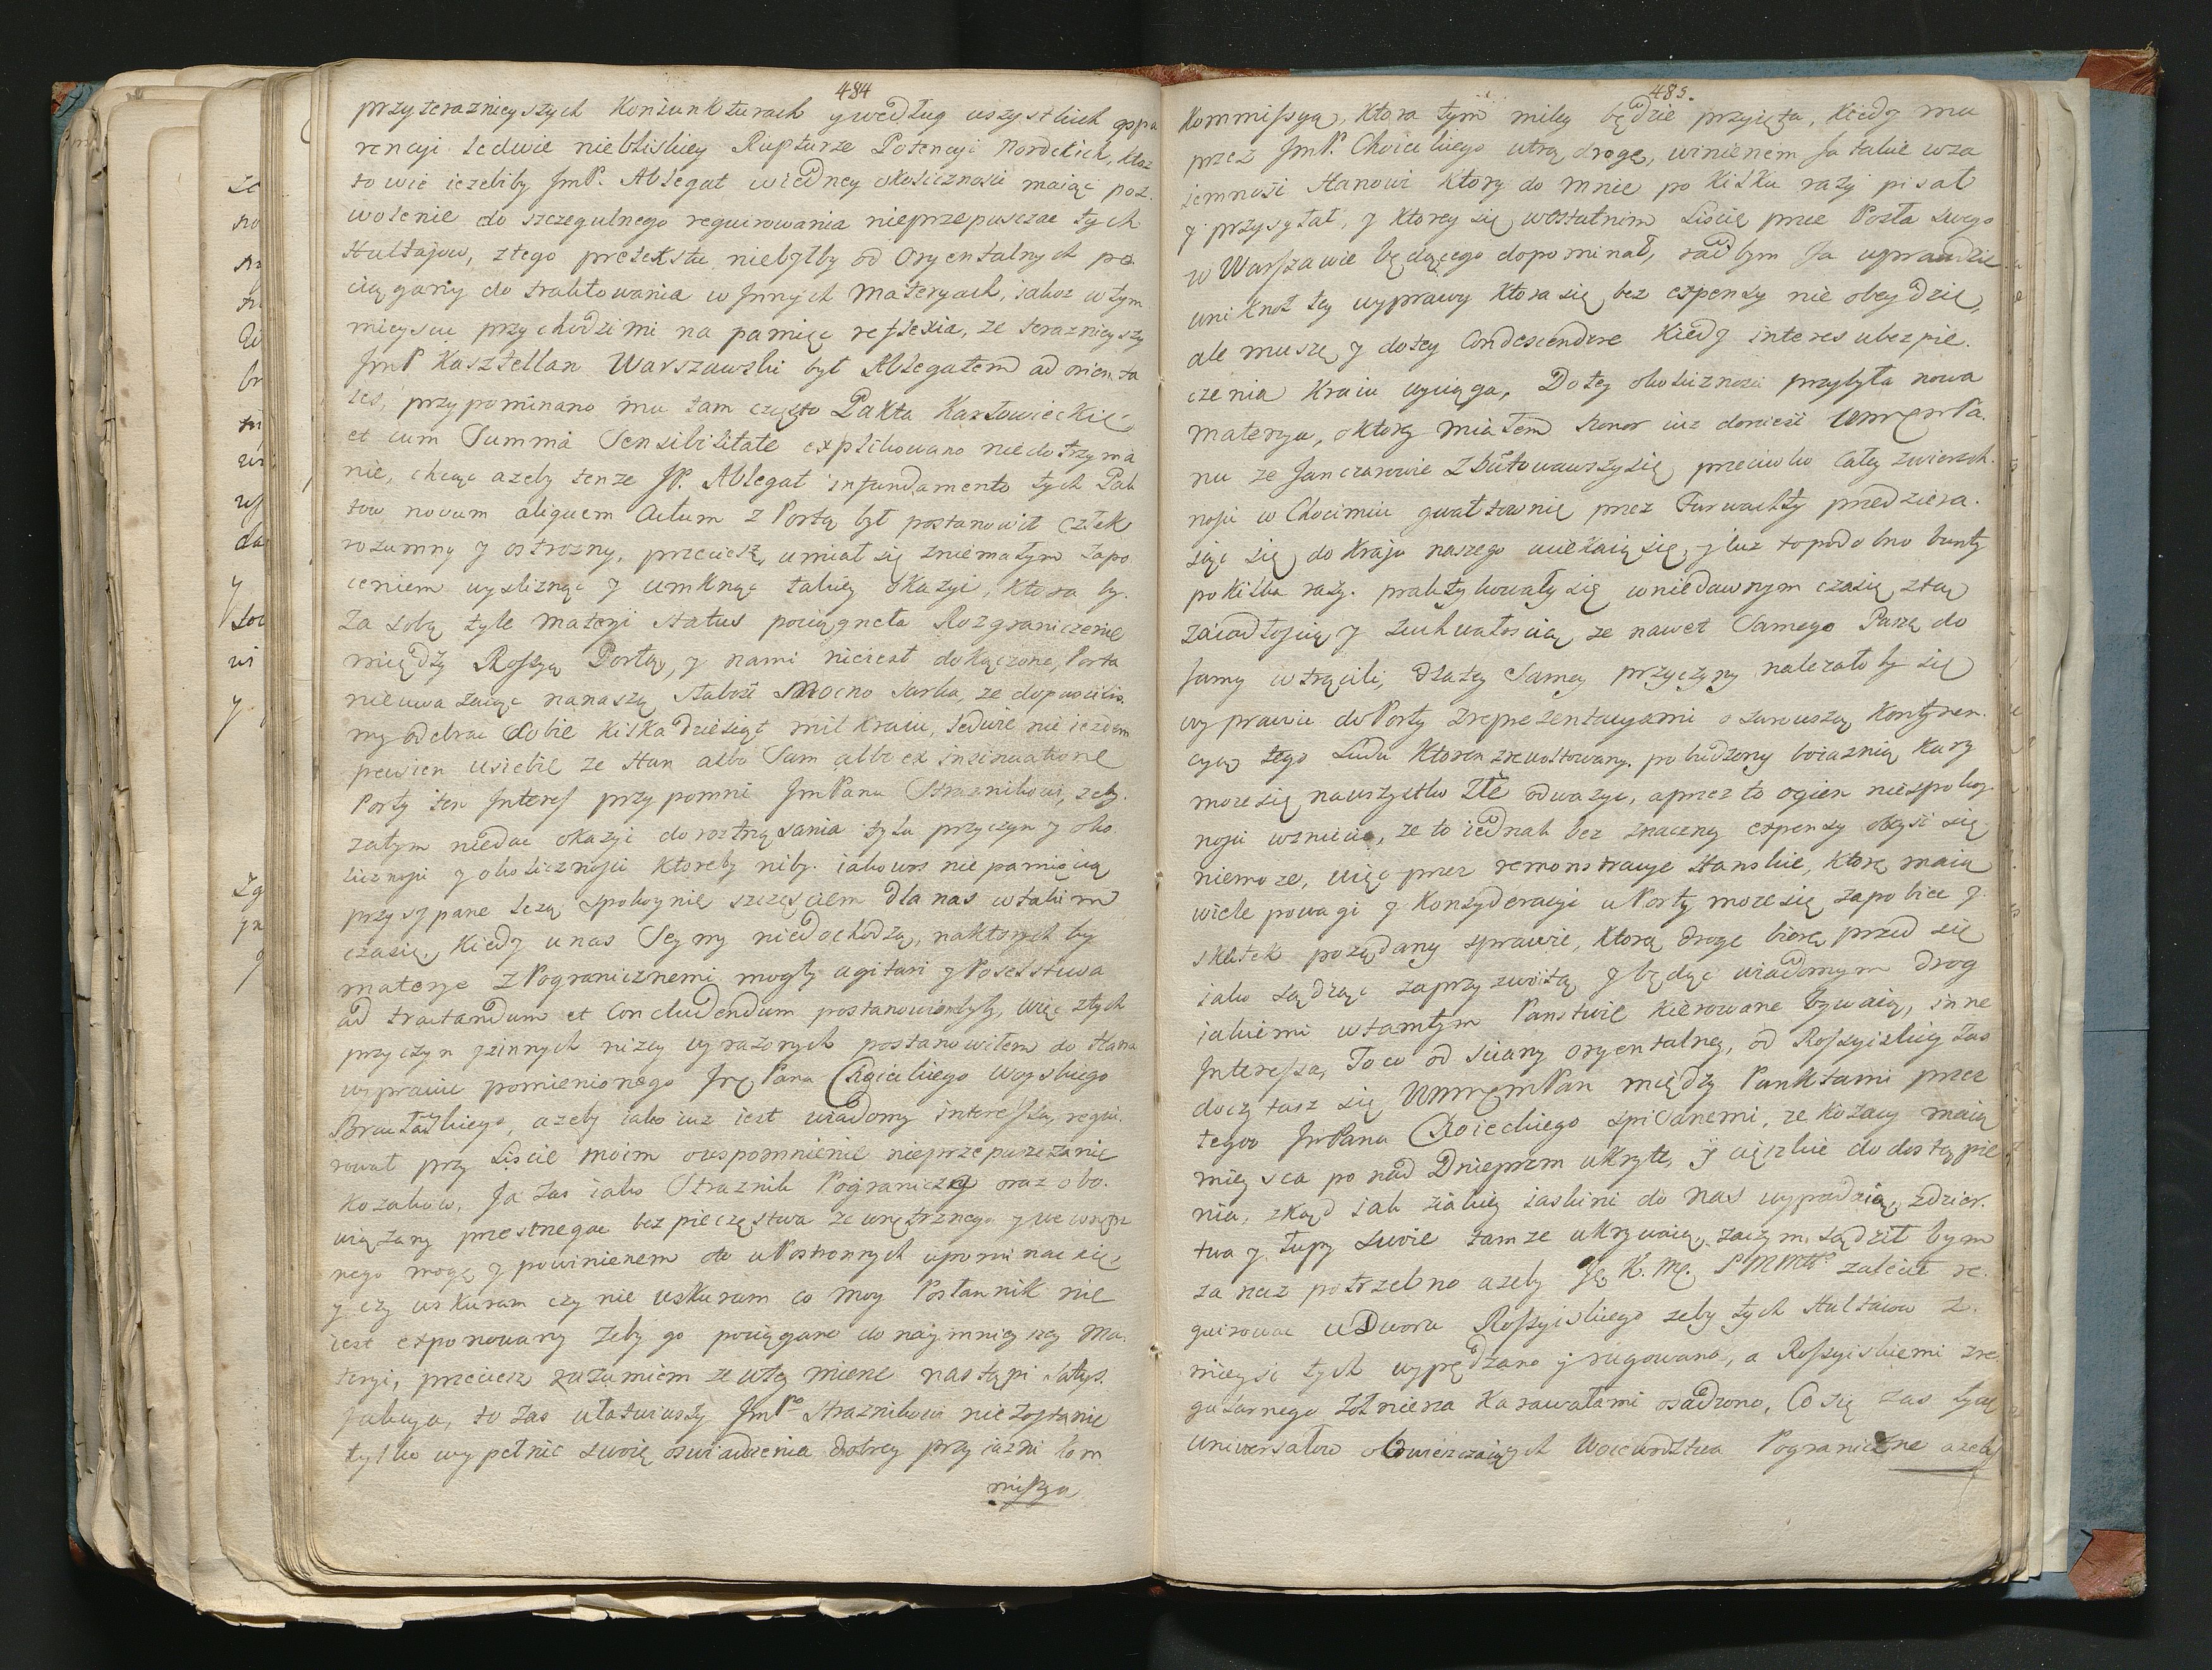 484
przyteraznieyszych Koniunkturach y według uszystkich appa
rencyi ledwie niebliskiey Rupturze Potencyi Nordckich, ktoz
to wie iezeliby JmP. Ablegat wiedney okoliczności maiąc poz
wolenie do szczegulnego requirowania nieprzepuszczae tych
Hultajow, ztego pretekstu niebyłby od Oryentalnych po
ciągany do traktowania w Innych Materyach, iakoz wtym
mieyscu przychodzi mi na pamięc reflexia, ze teraznieyszy
JmP Kasztellan Warszawski był Ablegatem ad orienta
les, przypominano mu tam często Pakta Karłowieckie
et cum Summa Sensibilitate explikowano niedotrzyma
nie, chcąc azeby tenze JP. Ablegat in fundamento tych Pak
tow novum aliquem Actum z Portą był postanowił człek
rozumny y ostrozny, przeciesz umiał się zniemałym zapo
ceniem wysliznąc y umknąc takiey okazyi, ktora by
za sobą tyle materyi status pociągneła Rozgraniczenie
między Rossyą Portą, y nami nieiest dokączone, Porta
nieuwazaiąc nanaszą słabość Mocno sarka, ze dopuscilis
my odebrac Sobie kilkadziesiąt mil kraiu, ledwie nie iestem
pewien usiebie ze Han albo Sam albo ex insinuatione
Porty ten Interes przypomni JmPanu Straznikowi, zeby
zatym niedac okazyi do roztrząsania tylu przyczyn y oko
licznosci y okolicznosci ktoreby niby iakowos niepamięcią
przysypane lezą spokoynie szczęsciem dla nas wtakim
czasie, kiedy unas Seymy niedochodzą, naktorych by
materye z Pogranicznemi mogły agitari y Poselstwa
ad tractandum et Concludendum postanowione były, więc ztych
przyczyn y innych nizey wyrazonych postanowiłem do Hana
wyprawic pomienionego JmPana Choieckiego Woyskiego
Bracławskiego, azeby iako iuz iest wiadomy interessu, requi
rował przy Liscie moim owspomnienie nieprzepuszczanie
Kozakow, Ja zas iako Straznik Pograniczny oraz obo
wiązany przestrzegac bezpieczęstwa zewnętrznego y wewnętrz
nego mogę y powinienem do uPostronnych upominac się
y czy wskuram czy nie wskuram co moy Posłannik nie
iest exponowany zeby go pociągano do naymnieyszey Ma
teryi, przeciesz rozumiem ze wtey mierze nastąpi satys
fakcya, to zas ułatwiwszy JmPu Straznikowi niezostanie
tylko wypełnic swoie oswiadczenia dobrey przyiazni kom
missya

485.
Kommissyą, ktora tym miley będzie przyięta, kiedy mu
przez JmP. Choieckiego utrą drogę, winienem Ja takie wza
iemnosci Hanowi ktory do mnie po kilku razy pisał
y przysyłał, y ktorey się wostatnim Liscie przez Posła swego
w Warszawie będącego dopominał, radbym Ja wprawdzie
uniknoł tey wyprawy ktora się bez expensy nie obeydzie,
ale muszę y dotey Condescendere kiedy interes ubezpie
czenia Kraiu wyciąga, Dotey okolicznosci przybyła nowa
materya, oktorey miałem honor iuz doniesc WmMPa
nu ze Janczarowie Zbuntowawszy się przeciwko całey zwierzch
nosci w Chocimiu gwałtownie przez Furwachty przedziera
iąc się do Kraju naszego uciekaią się, y iuz to podobno bunty
po kilka razy praktykowały się wniedawnym czasie, ztą
zaiadłoscią y zuchwałoscią ze nawet Samego Paszę do
Jamy wtrącili, dlatey Samey przyczyny należałoby się
wyprawic do Porty zreprezentacyami o surowszą kontynen
cyą tego Ludu ktoren zrewoltowany, pobudzony boiaznią kary
moze się nawszystko złe odwazyc, aprzez to ogien niespokoy
nosci wzniecic, ze to iednak bez znaczney expensy obeysc się
niemoze, więc przez remonstracye Hanskie, ktore maią
wiele powagi y konsyderacyi u Porty moze się zapobiec y
skutek poządany sprawie, ktorą drogę biorę przed się
iako sądząc zaprzyzwoitą y będąc wiadomym drog
iakiemi wtamtym Panstwie kierowane bywaią, inne
Interessa, To co od sciany oryentalney, od Rossyiskiey zas
doczytasz się WmMPan między Punktami przez
tegoz JmPana Choieckiego spisanemi, ze kozacy maią
mieysca po nad Dnieprem ukryte, y cięzkie do dostąpie
nia, zkąd iak ziakiey iaskini do nas wypadaią, zdzier
twa y łupy swoie tamze ukrywaią, zaczym sądził bym
za rzecz potrzebno azeby J. K. Mć. PMMłł zalecił re
quirowac u Dworu Rossyiskiego zeby tych Hultaiow z
mieysc tych wypędzano y rugowano, a Rossyiskiemi zre
gularnego Zołnierza Karawałami osadzono, Co się zas tycze
Uniwersałow obwieszczaiących Woiewodztwa Pograniczne azeby